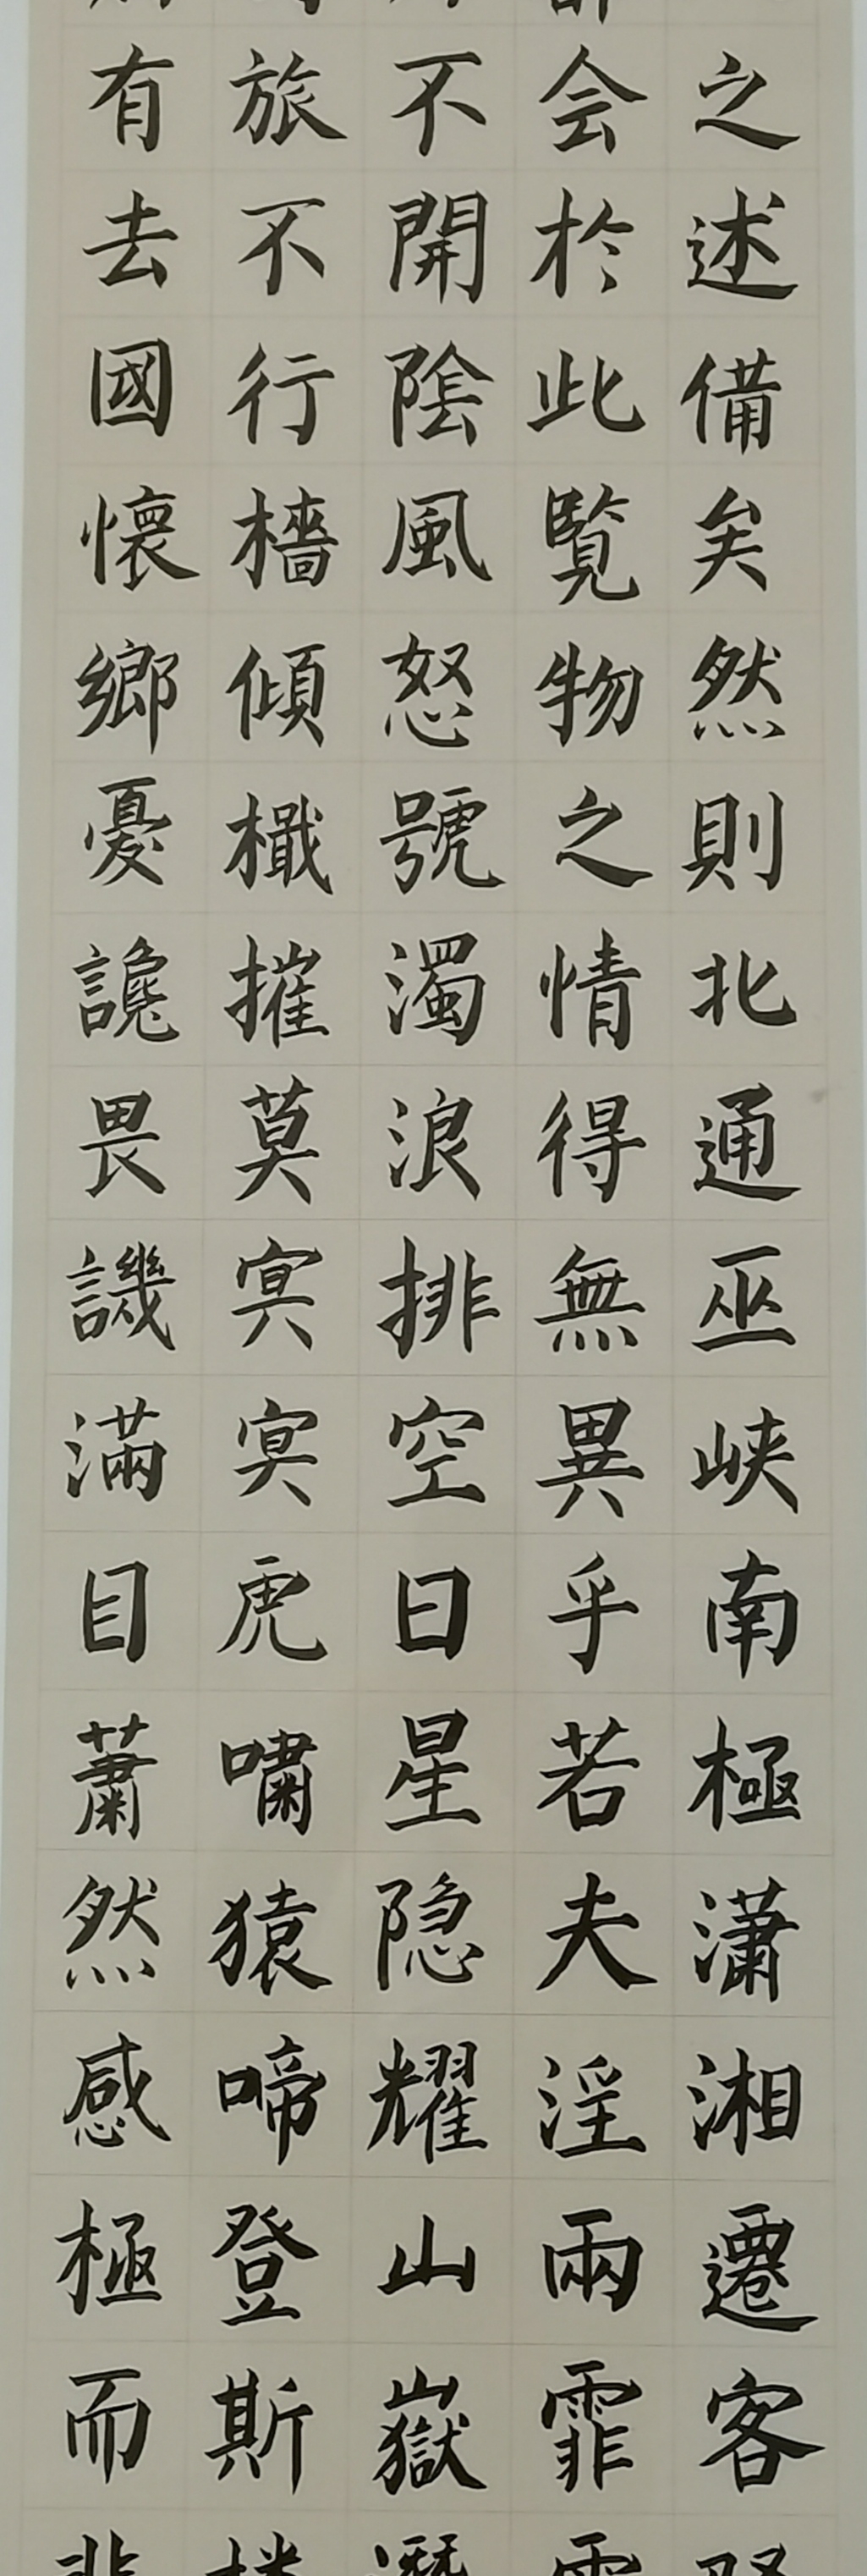 之述備矣然則北通巫峡南極瀟湘遷客
会於此覧物之情得無異乎若夫淫雨霏
不開陰風怒號濁浪排空日星隐耀山嶽
旅不行檣傾檝摧莫冥冥虎嘯猿啼登斯
有去國懷鄉憂讒畏譏滿目蕭然感極而